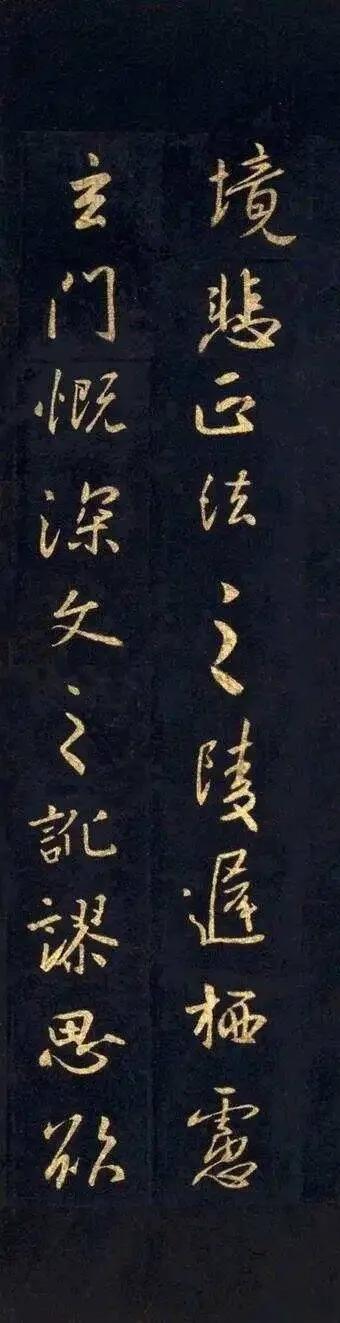 境悲正法之陵遅栖慮
玄門慨深文之訛謬思欲